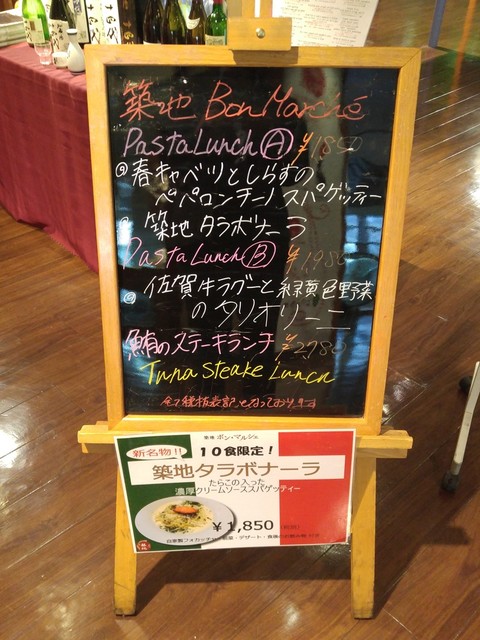 築地 Bon Marché
Pasta Lunch Ⓐ ¥1850
◎春キャベツとしらすの
ペペロンチーノ スパゲッティー
築地 タラボナーラ
Pasta Lunch Ⓑ ¥1,980
◎佐賀牛ラグーと緑黄色野菜
のタリオリーニ
鮪のステーキランチ ¥2,780
Tuna Steake Lunch
全て税抜表記となっております
ボン・マルシェ
新名物!! 10食限定!
築地タラボナーラ
たらこの入った
濃厚クリームソーススパゲッティー
¥1,850
自家製フォカッチャ・前菜・デザート・食後の